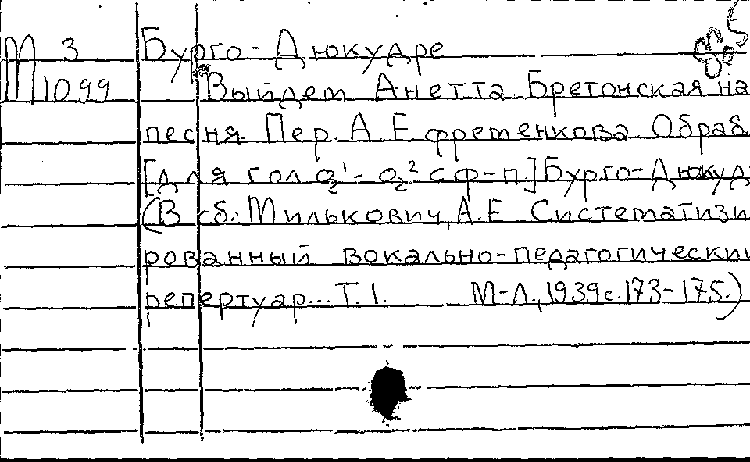 М 3
1099
Бурго-Дюкудре
Выйдем Анетта. Бретонская на
песня. Пер. А.Е. Фретенкова. Обраб
[для гол. a¹-a² с ф-п.] Бурго-Дюкуд
(В сб.: Милькович, А.Е Системати­зи
рованный вокально-педагогический
репертуар... Т. 1. М-Л., 1939 с. 173-175.)